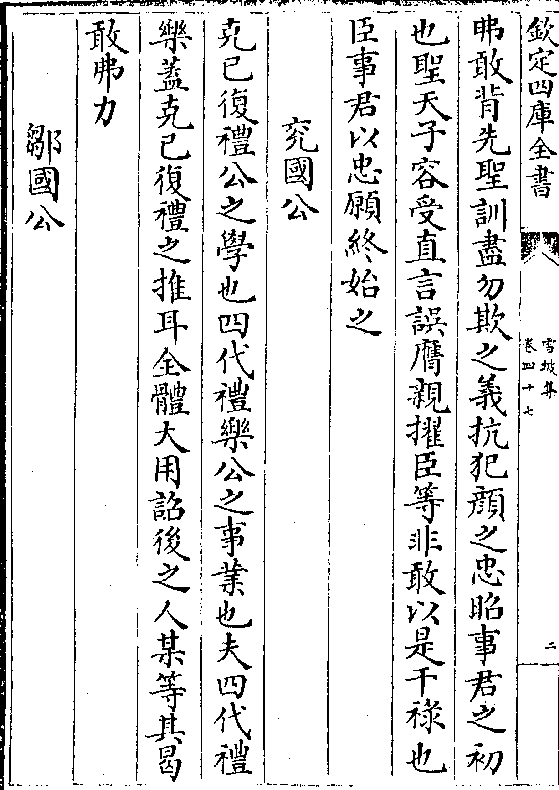 欽定四庫全書
雪坡集
卷四十七
二
弗敢背先聖訓盡勿欺之義抗犯顔之忠昭事君之初
也聖天子容受直言誤膺親擢臣等非敢以是干祿也
臣事君以忠願終始之
兖國公
克己復禮公之學也四代禮樂公之事業也夫四代禮
樂蓋克已復禮之推耳全體大用詔後之人某等其曷
敢弗力
鄒國公